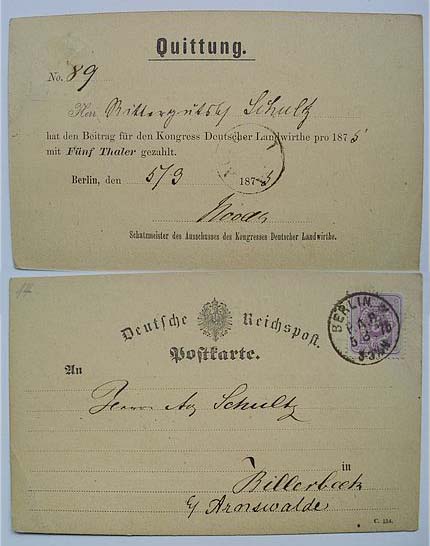 Quittung.
No. 89
Herr Rittergutsb Schultz
hat den Beitrag für den Kongress Deutscher Landwirthe pro 1875
mit Fünf Thaler gezahlt.
Berlin, den 5/3 1875
Schatzmeister des Ausschusses des Kongresses Deutscher Landwirthe.
Deutsche Reichspost.
Postkarte.
BERLIN W
P.A.
5 3 75
An
Herrn Schultz
in
Billerbeck
Arnswalde
C. 154.